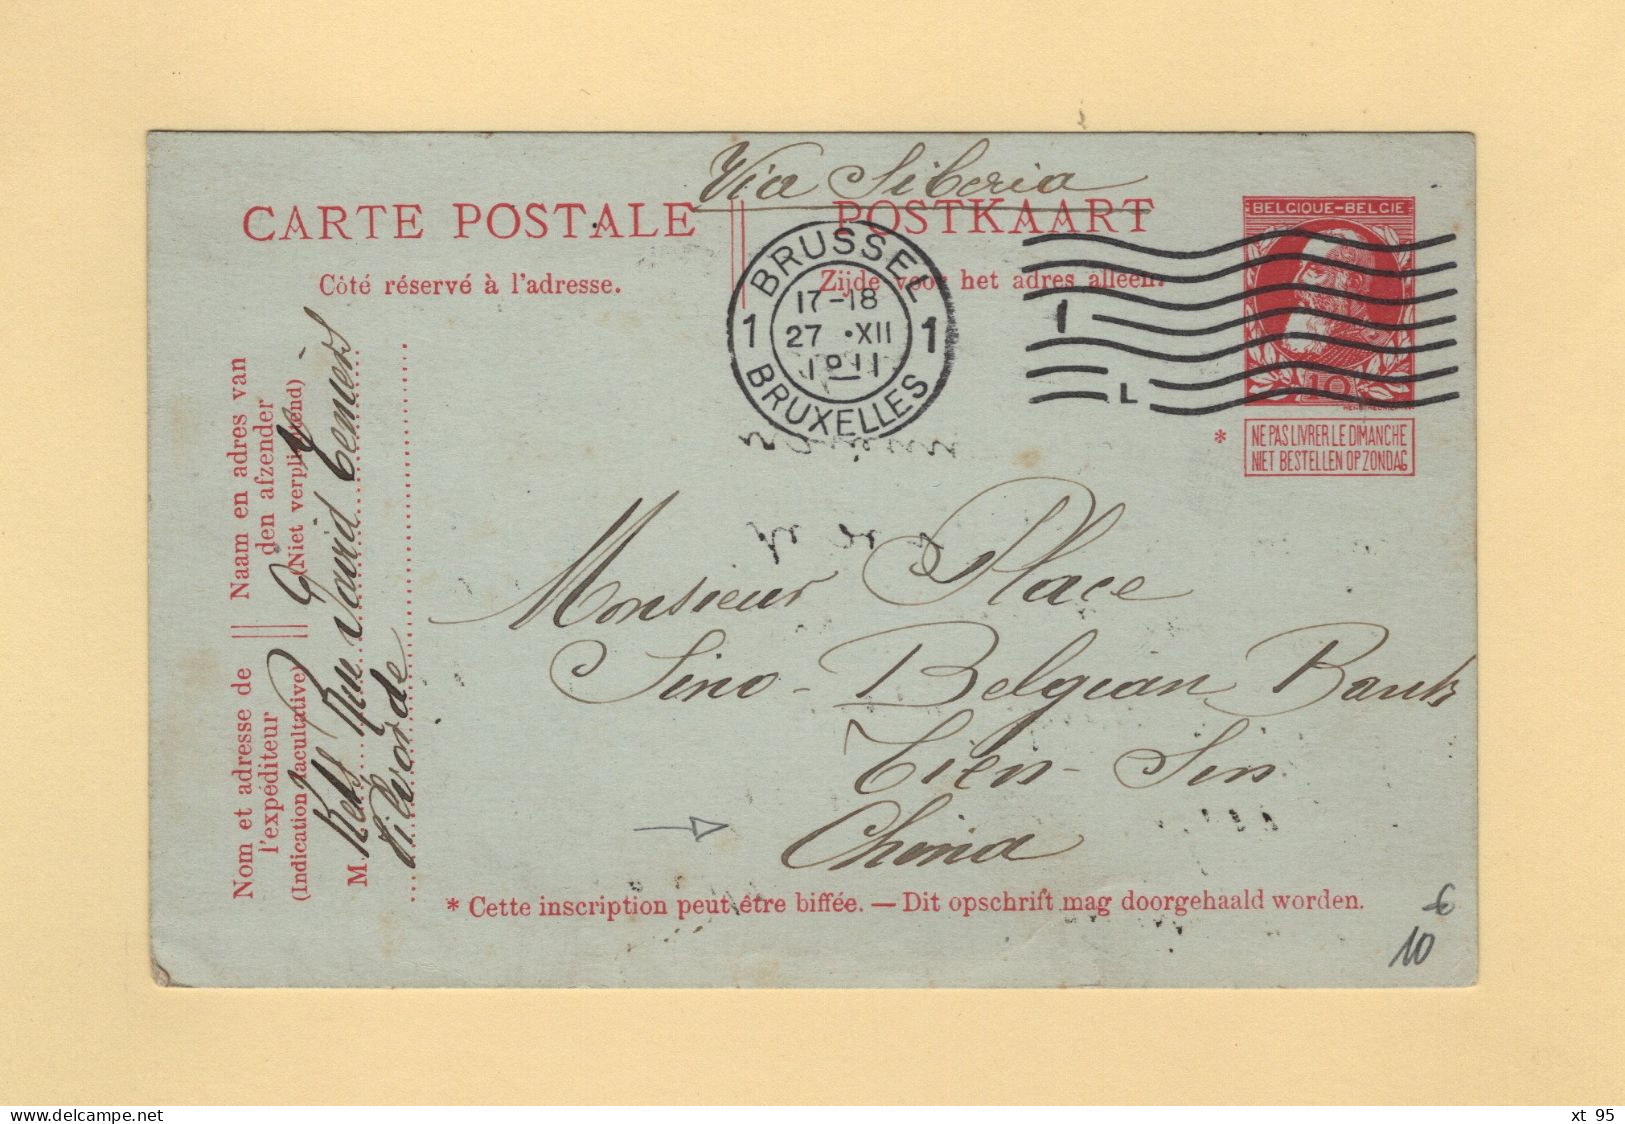 Via Siberia
CARTE POSTALE
POSTKAART
Côté réservé à l'adresse.
Zijde voor het adres alleen.
BELGIQUE-BELGIE
10
BRUSSEL
17-18
1 27 • XII 1
1911
BRUXELLES
1
L
* NE PAS LIVRER LE DIMANCHE
NIET BESTELLEN OP ZONDAG
Naam en adres van
den afzender
(Niet verplichtend)
Nom et adresse de
l'expéditeur
(Indication facultative)
M. Rue David
Vilvorde
Monsieur Place
Sino-Belgian Bank
Tien-Sin
China
* Cette inscription peut être biffée. — Dit opschrift mag doorgehaald worden.
€
10
xt 95